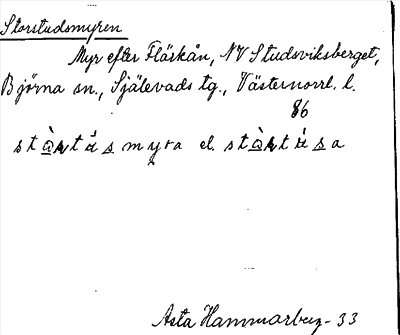 Storstudsmyren
Myr efter Fläskån, NV Studsviksberget,
Björna sn., Själevads tg., Västernorrl. l.
86
myra el.
Asta Hammarberg - 33